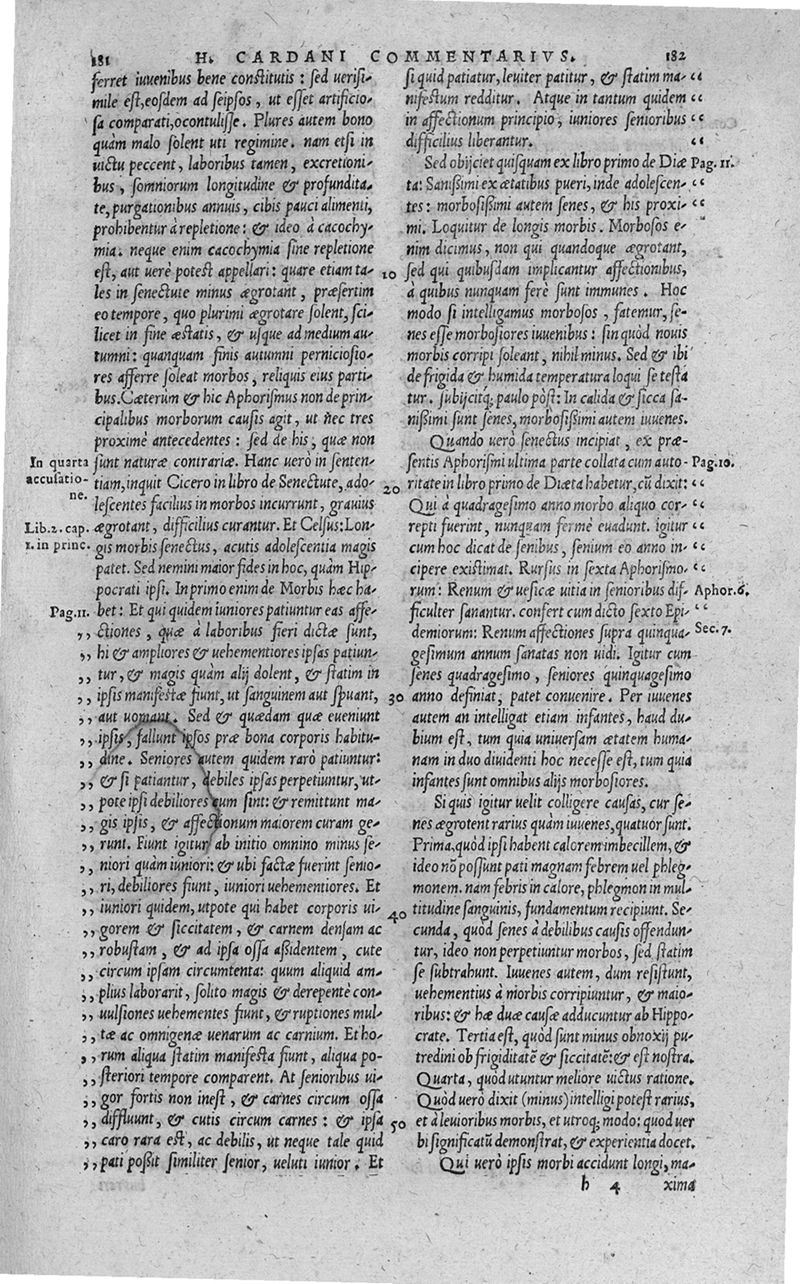 181 H. CARDANI COMMENTARIVS. 182
ferret iuuenibus bene constitutis : sed uerisi-
mile est, eosdem ad seipsos, ut esset artificio-
sa comparatio, contulisse. Plures autem bono
quàm malo solent uti regimine. nam etsi in
uictu peccent, laboribus tamen, excretioni-
bus, somniorum longitudine & profundita-
te, purgationibus annuis, cibis pauci alimenti,
prohibentur à repletione: & ideo à cacochy-
mia. neque enim cacochymia sine repletione
est, aut uerè potest appellari: quare etiam ta- 10
les in senectute minus ægrotant, præsertim
eo tempore, quo plurimi ægrotare solent, sci-
licet in fine æstatis, & usque ad medium au-
tumni: quanquam finis autumni perniciosio-
res afferre soleat morbos, reliquis eius parti-
bus. Cæterùm & hic Aphorismus non de prin-
cipalibus morborum causis agit, ut nec tres
proximè antecedentes : sed de his, quæ non
In quarta sunt naturæ contrariæ. Hanc uerò in senten-
accusatio- tiam, inquit Cicero in libro de Senectute, ado- 20
ne. lescentes facilius in morbos incurrunt, grauius
Lib.2. cap. ægrotant, difficilius curantur. Et Celsus: Lon-
1. in princ. gis morbis senectus, acutis adolescentia magis
patet. Sed nemini maior fides in hoc, quàm Hip
pocrati ipsi. In primo enim de Morbis hæc ha-
Pag. 11. bet : Et qui quidem iuniores patiuntur eas affe-
,, ctiones, quæ à laboribus fieri dictæ sunt,
,, hi & ampliores & uehementiores ipsas patiun-
,, tur, & magis quàm alij dolent, & statim in
,, ipsis manifestæ fiunt, ut sanguinem aut spuant, 30
,, aut uomant. Sed & quædam quæ eueniunt
,, ipsis, fallunt ipsos præ bona corporis habitu-
,, dine. Seniores autem quidem rarò patiuntur:
,, & si patiantur, debiles ipsas perpetiuntur, ut-
,, pote ipsi debiliores cum sint: & remittunt ma-
,, gis ipsis, & affectionum maiorem curam ge-
,, runt. Fiunt igitur ab initio omnino minus se-
,, niori quàm iuniori: & ubi factæ fuerint senio-
,, ri, debiliores fiunt, iuniori uehementiores. Et
,, iuniori quidem, utpote qui habet corporis ui- 40
,, gorem & siccitatem, & carnem densam ac
,, robustam, & ad ipsa ossa aßidentem, cute
,, circum ipsam circumtenta: quum aliquid am-
,, plius laborarit, solito magis & derepentè con-
,, uulsiones uehementes fiunt, & ruptiones mul-
,, tæ ac omnigenæ uenarum ac carnium. Et ho-
,, rum aliqua statim manifesta fiunt, aliqua po-
,, steriori tempore comparent. At senioribus ui-
,, gor fortis non inest, & carnes circum ossa
,, diffluunt, & cutis circum carnes : & ipsa 50
,, caro rara est, ac debilis, ut neque tale quid
,, pati poßit similiter senior, ueluti iunior. Et
si quid patiatur, leuiter patitur, & statim ma- “
nifestum redditur. Atque in tantum quidem “
in affectionum principio, iuniores senioribus “
difficilius liberantur. “
Sed obijciet quisquam ex libro primo de Diæ Pag. 11.
ta: Sanißimi ex ætatibus pueri, inde adolescen- “
tes : morbosißimi autem senes, & his proxi- “
mi. Loquitur de longis morbis. Morbosos e-
nim dicimus, non qui quandoque ægrotant,
sed qui quibusdam implicantur affectionibus,
à quibus nunquam ferè sunt immunes. Hoc
modo si intelligamus morbosos, fatemur, se-
nes esse morbosiores iuuenibus : sin quòd nouis
morbis corripi soleant, nihil minus. Sed & ibi
de frigida & humida temperatura loqui se testa
tur. subijcitq; paulo pòst: In calida & sicca sa-
nißimi sunt senes, morbosißimi autem iuuenes.
Quando uerò senectus incipiat, ex præ-
sentis Aphorismi ultima parte collata cum auto- Pag. 10.
ritate in libro primo de Diæta habetur, cũ dixit: “
Qui à quadragesimo anno morbo aliquo cor- “
repti fuerint, nunquam fermè euadunt. igitur “
cum hoc dicat de senibus, senium eo anno in- “
cipere existimat. Rursus in sexta Aphorismo-
rum : Renum & uesicæ uitia in senioribus dif- Aphor. 6.
ficulter sanantur. confert cum dicto sexto Epi “
demiorum: Renum affectiones supra quinqua- Sec. 7.
gesimum annum sanatas non uidi. Igitur cum
senes quadragesimo, seniores quinquagesimo
anno definiat, patet conuenire. Per iuuenes
autem an intelligat etiam infantes, haud du-
bium est, tum quia uniuersam ætatem huma-
nam in duo diuidenti hoc necesse est, tum quia
infantes sunt omnibus alijs morbosiores.
Si quis igitur uelit colligere causas, cur se-
nes ægrotent rarius quàm iuuenes, quatuor sunt.
Prima, quòd ipsi habent calorem imbecillem, &
ideo nõ possunt pati magnam febrem uel phleg-
monem. nam febris in calore, phlegmon in mul-
titudine sanguinis, fundamentum recipiunt. Se-
cunda, quòd senes à debilibus causis offendun-
tur, ideo non perpetiuntur morbos, sed statim
se subtrahunt. Iuuenes autem, dum resistunt,
uehementius à morbis corripiuntur, & maio-
ribus: & hæ duæ causæ adducuntur ab Hippo-
crate. Tertia est, quòd sunt minus obnoxij pu-
tredini ob frigiditatẽ & siccitatẽ: & est nostra.
Quarta, quòd utuntur meliore uictus ratione.
Quòd uerò dixit (minus) intelligi potest rarius,
et à leuioribus morbis, et utroq; modo: quod uer
bi significatũ demonstrat, & experientia docet.
Qui uerò ipsis morbi accidunt longi, ma-
h 4 xima